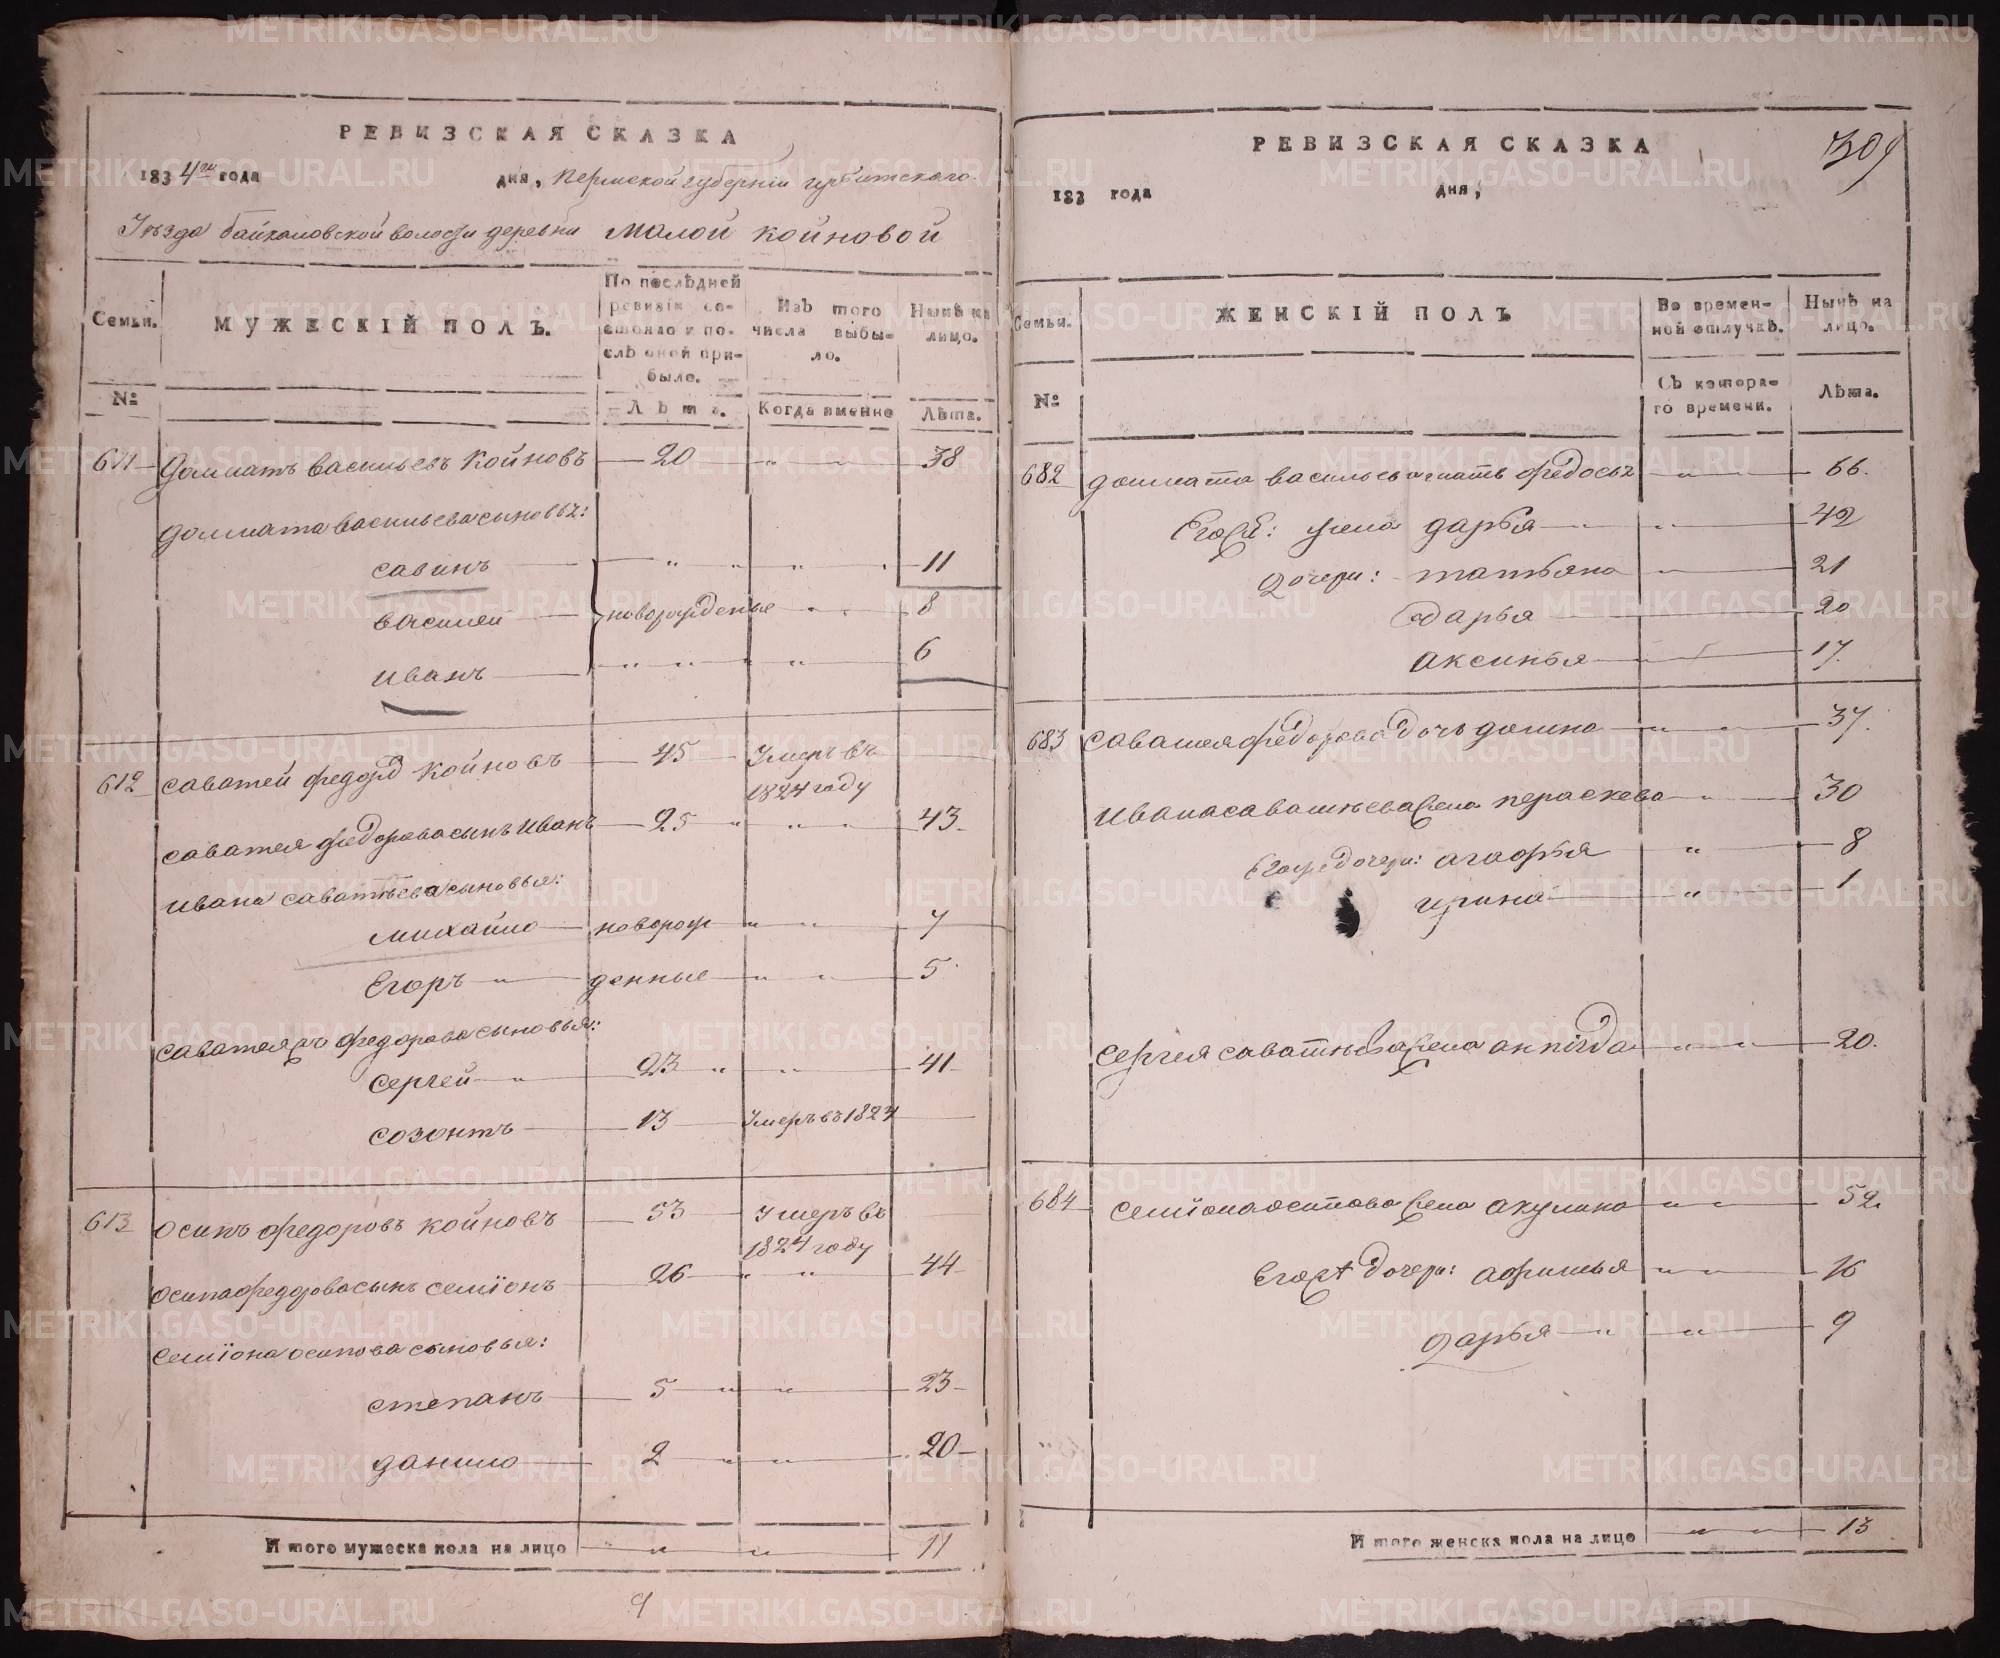 РЕВИЗСКАЯ СКАЗКА
1834го года дня, Пермской губернiи ирбитскаго
Уѣзда байкаловской волости деревни малой койновой
Семьи. МУЖЕСКIЙ ПОЛЪ. По послѣдней ревизiи состояло и послѣ оной прибыло. Изъ того числа выбыло. Нынѣ на лицо.
№ Лѣта. Когда именно Лѣта.
611 Домматъ васильевъ Койновъ 20 " 38
Доммата васильева сыновья:
савинъ " " " 11
василей новорожденые " 8
иванъ " " " 6
612 саватей федоро Койновъ 45 Умеръ въ 1824 году
саватея федорова сынъ иванъ 25 " " 43
ивана саватѣева сыновья:
михайло новорож " " 7
Егоръ " денные " " 5
саватея федорова сыновья:
сергей " 23 " " 41
созонтъ 13 Умеръ въ 1824
613 осипъ федоровъ койновъ 53 Умеръ въ 1824 году
осипа федорова сынъ семiонъ 26 " " 44
семiона осипова сыновья:
степанъ 5 " " 23
данило 2 " " 20
Итого мужеска пола на лицо " " 11
9
РЕВИЗСКАЯ СКАЗКА
309
183 года дня,
Семьи. ЖЕНСКIЙ ПОЛЪ Во временной отлучкѣ. Нынѣ на лицо.
№ Съ котораго времени. Лѣта.
682 доммата васильева мать федосья " 66.
Его жена дарья " " 42
дочери: татьяна " 21
дарья 20
аксинья " 17.
683 саватея федорова дочь домна " " 37.
ивана саватѣева жена пераскева " 30
Его дочери: агафья " 8
ирина " 1
сергея саватѣева жена " " 20.
684 семiона осипова жена акулина " " 52.
Его дочери: афимья " " 16
дарья " " 9
Итого женска пола на лицо " " 13
METRIKI.GASO-URAL.RU